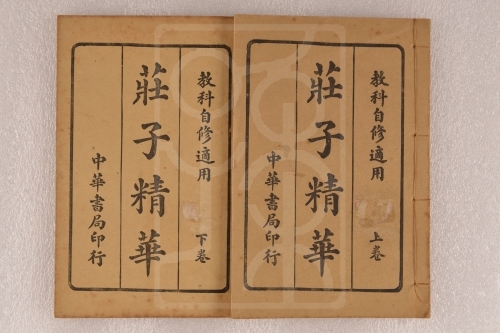 教科自修適用 上卷
莊子精華
中華書局印行
教科自修適用 下卷
莊子精華
中華書局印行